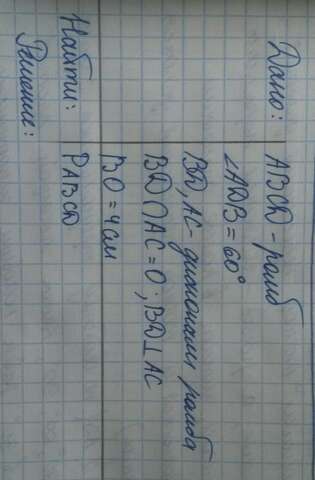 Дано: ABCD - ромб
∠ADB = 60°
BD, AC - диагонали ромба
BD ∩ AC = O; BD ⊥ AC
BO = 4 см
Найти: PABCD
Решение: